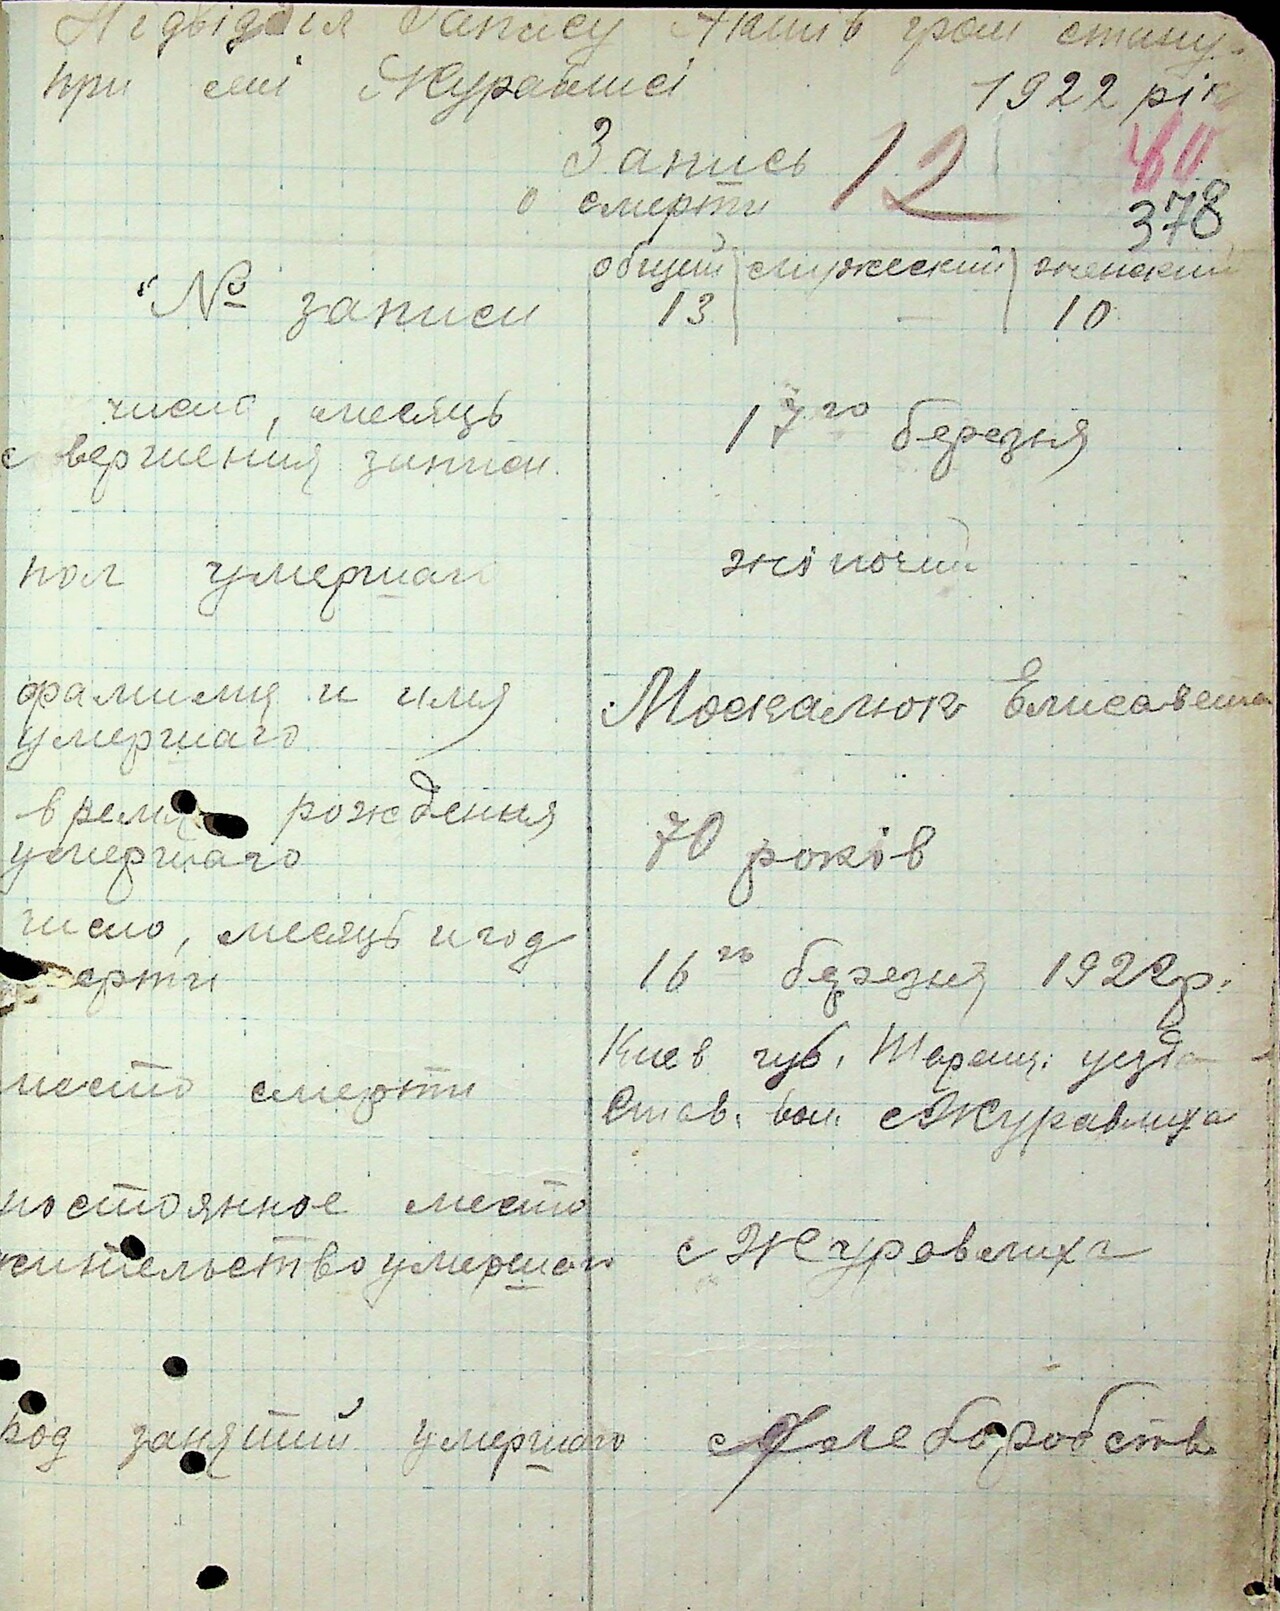 Підвідділ Запису Актів гром стану
при селі Журавлисі 1922 рік
Запись 12 40
о смерти 378
общий мужеский женский
№ записи 13 — 10
число, месяць
с вершения записи 17го березня
пол умершаго жіночий
фамилия и имя Москалюк Елисавета
умершаго
время рождения
умершаго 70 років
число, месяць и год
ерти 16го березня 1922р.
Киев губ. Таращ. уезда
место смерти Став. вол. с Журавлиха
постоянное место
жительство умершаго с Журавлиха
род занятий умершаго хлеборобств